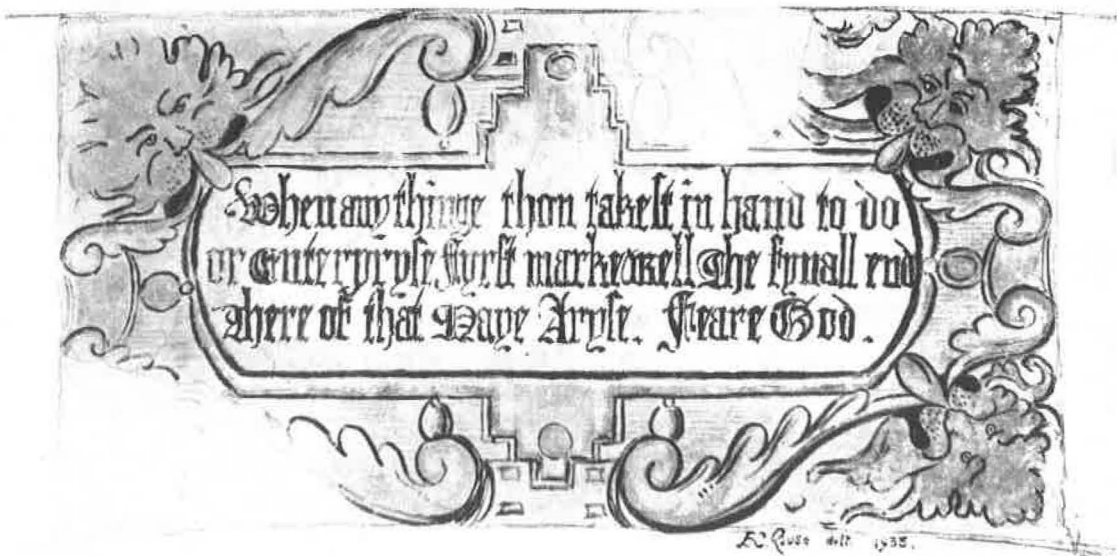 When any thinge thou takest in hand to do
or Enterpryse fyrst marke well The fynall end
There of that Maye Aryse. Feare God.
E.C. Rouse delt 1938.